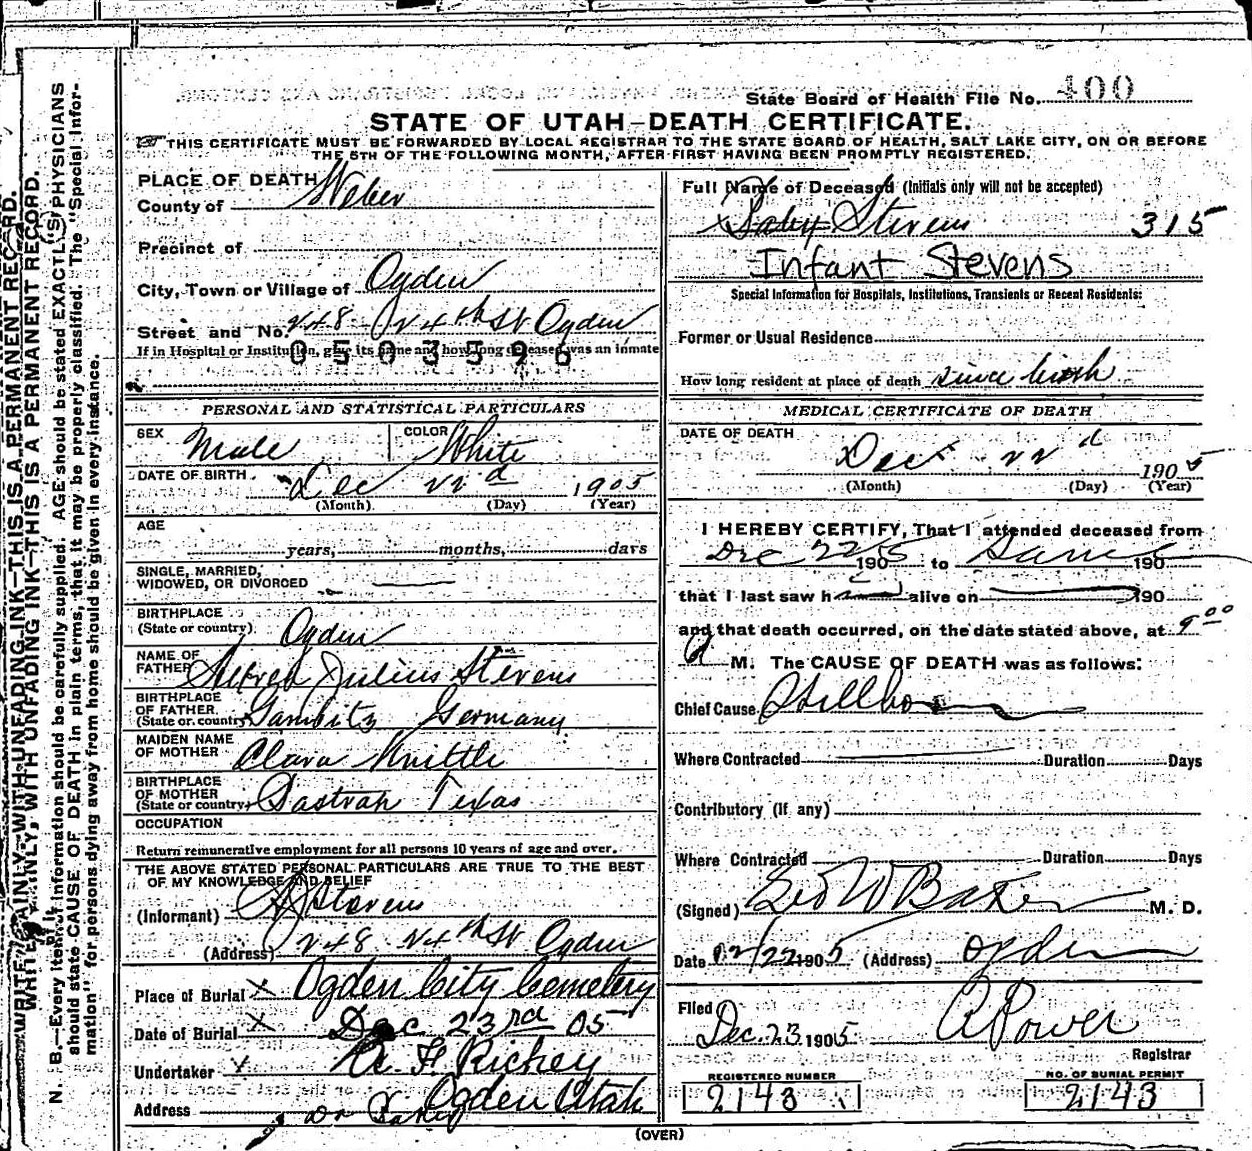 State Board of Health File No. 400
STATE OF UTAH—DEATH CERTIFICATE.
THIS CERTIFICATE MUST BE FORWARDED BY LOCAL REGISTRAR TO THE STATE BOARD OF HEALTH, SALT LAKE CITY, ON OR BEFORE
THE 5TH OF THE FOLLOWING MONTH, AFTER FIRST HAVING BEEN PROMPTLY REGISTERED.
WRITE PLAINLY, WITH UNFADING INK—THIS IS A PERMANENT RECORD.
N. B.—Every item of information should be carefully supplied. AGE should be stated EXACTLY. PHYSICIANS
should state CAUSE OF DEATH in plain terms, that it may be properly classified. The "Special Infor-
mation" for persons dying away from home should be given in every instance.
PLACE OF DEATH
County of Weber
Precinct of
City, Town or Village of Ogden
Street and No. 248 24th St Ogden
If in Hospital or Institution, give its name and how long deceased was an inmate
0503596
PERSONAL AND STATISTICAL PARTICULARS
SEX Male COLOR White
DATE OF BIRTH Dec 22d 1905
(Month) (Day) (Year)
AGE
years, months, days
SINGLE, MARRIED,
WIDOWED, OR DIVORCED
BIRTHPLACE
(State or country) Ogden
NAME OF
FATHER Alfred Julius Stevens
BIRTHPLACE
OF FATHER
(State or country) Germany
MAIDEN NAME
OF MOTHER Clara Knittle
BIRTHPLACE
OF MOTHER
(State or country) Bastrah Texas
OCCUPATION
Return remunerative employment for all persons 10 years of age and over.
THE ABOVE STATED PERSONAL PARTICULARS ARE TRUE TO THE BEST
OF MY KNOWLEDGE AND BELIEF
(Informant) A J Stevens
(Address) 248 24th St Ogden
Place of Burial X Ogden City Cemetery
Date of Burial X Dec 23rd 05
Undertaker X Richey
Address Ogden Utah
Dr Baker
Full Name of Deceased (Initials only will not be accepted)
X Baby Stevens 315
Infant Stevens
Special Information for Hospitals, Institutions, Transients or Recent Residents:
Former or Usual Residence
How long resident at place of death since birth
MEDICAL CERTIFICATE OF DEATH
DATE OF DEATH
Dec 22d 1905
(Month) (Day) (Year)
I HEREBY CERTIFY, That I attended deceased from
Dec 22 1905 to Same 190
that I last saw h alive on 190
and that death occurred, on the date stated above, at 9 00
M. The CAUSE OF DEATH was as follows:
Chief Cause Stillborn
Where Contracted Duration Days
Contributory (if any)
Where Contracted Duration Days
(Signed) Geo W Baker M. D.
Date 12/22 1905 (Address) Ogden
Filed Dec. 23 1905 A Power
Registrar
REGISTERED NUMBER
2143
NO. OF BURIAL PERMIT
2143
(OVER)